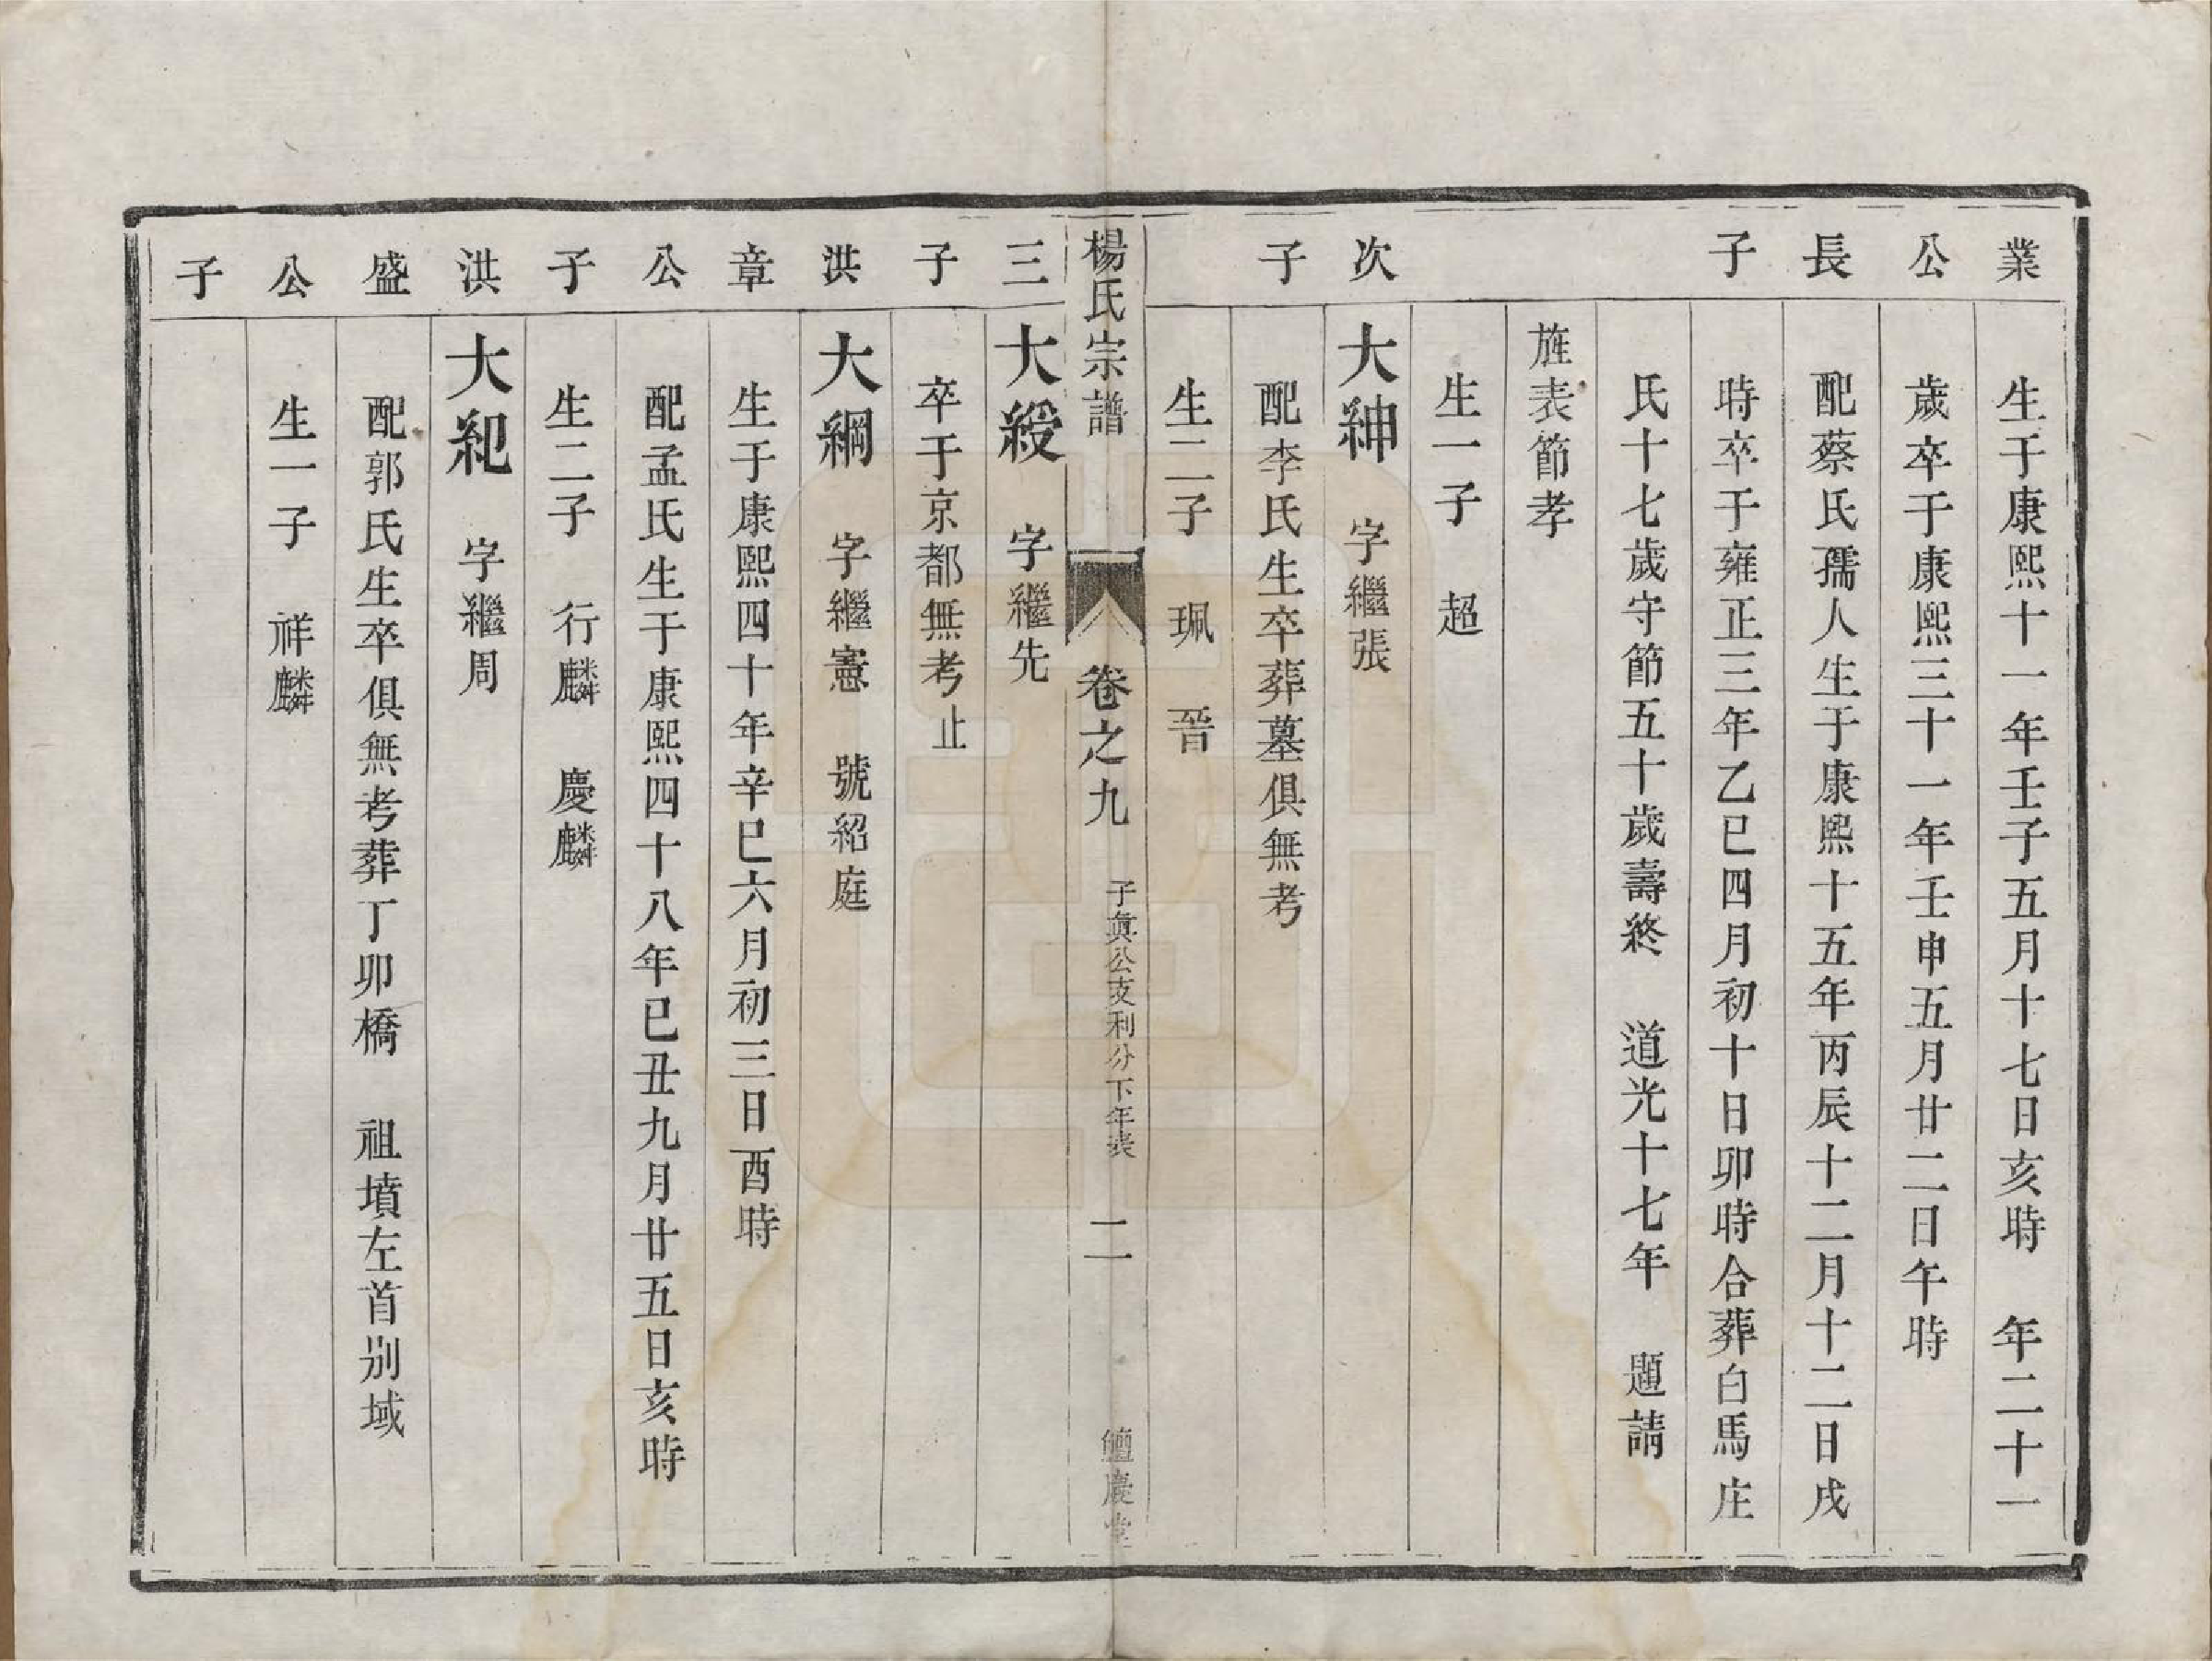 業
生于康熙十一年壬子五月十七日亥時　年二十一
公
歲卒于康熙三十一年壬申五月廿二日午時
長
配蔡氏孺人生于康熙十五年丙辰十二月十二日戌
子
時卒于雍正三年乙巳四月初十日卯時合葬白馬庄
氏十七歲守節五十歲壽終　道光十七年　題請
旌表節孝
生一子　超
次
大紳　字繼張
子
配李氏生卒葬墓俱無考
生二子　珮　晉
楊氏宗譜　卷之九　子眞公支利分下年表　二　鱣慶堂
三
大綬　字繼先
子
卒于京都無考止
洪
大綱　字繼憲　號紹庭
章
生于康熙四十年辛巳六月初三日酉時
公
配孟氏生于康熙四十八年巳丑九月廿五日亥時
子
生二子　行麟　慶麟
洪
大紀　字繼周
盛
配郭氏生卒俱無考葬丁卯橋　祖墳左首別域
公
生一子　祥麟
子